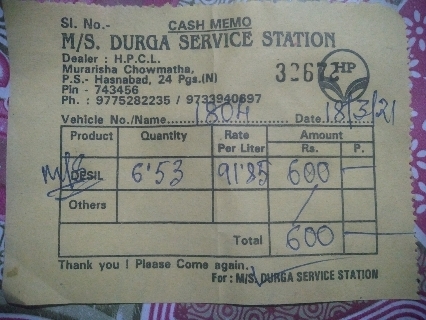 Sl. No.- CASH MEMO
M/S. DURGA SERVICE STATION
Dealer : H.P.C.L.
Murarisha Chowmatha,
P.S.- Hasnabad, 24 Pgs.(N)
Pin - 743456
Ph. : 9775282235 / 9733940697
32672
HP
Vehicle No./Name 1804 Date 18/3/21
Product Quantity Rate Per Liter Amount
Rs. P.
M/S 6.53 91.85 600 —
Others
Total 600 —
Thank you ! Please Come again.
For : M/S. DURGA SERVICE STATION